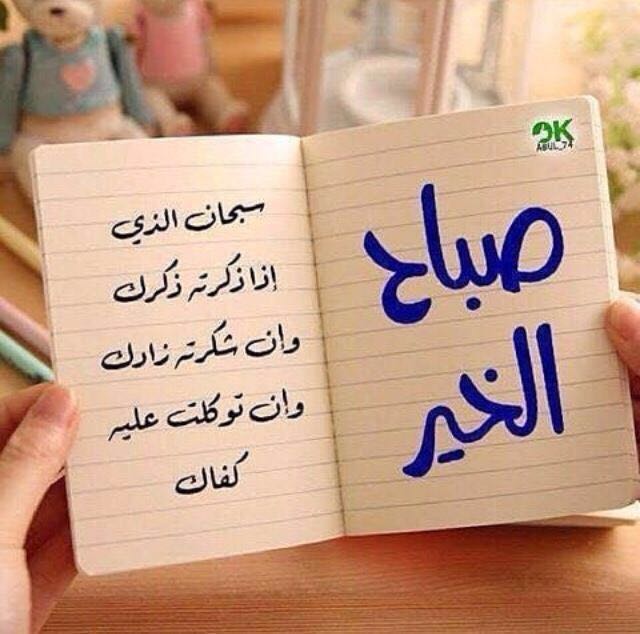 صباح
الخير
سبحان الذي
إذا ذكرته ذكرك
وان شكرته زادك
وإن توكلت عليه
كفاك
OK
ABUL_74